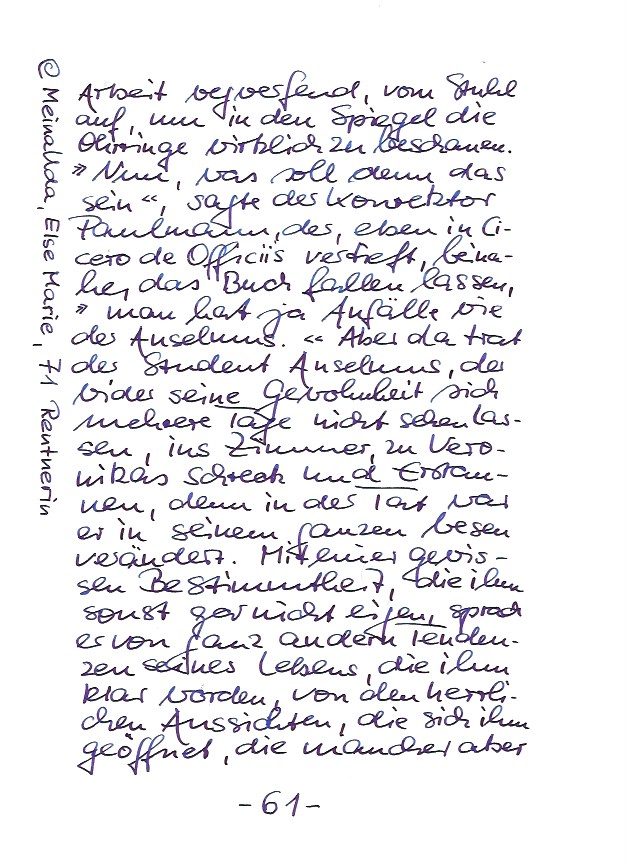 Arbeit wegwerfend, vom Stuhl
auf, um in den Spiegel die
Ohrringe wirklich zu beschauen.
» Nun, was soll denn das
sein “, sagte der Konrektor
Paulmann, der, eben in Ci-
cero de Officiis vertieft, beina-
he, das Buch fallen lassen,
» man hat ja Anfälle wie
der Anselmus. « Aber da trat
der Student Anselmus, der
wider seine Gewohnheit sich
mehrere Tage nicht sehen las-
sen, ins Zimmer, zu Vero-
nikas Schreck und Erstau-
nen, denn in der Tat war
er in seinem ganzen Wesen
verändert. Mit einer gewis-
sen Bestimmtheit, die ihm
sonst gar nicht eigen, sprach
er von ganz andern Tenden-
zen seines Lebens, die ihm
klar worden, von den herrli-
chen Aussichten, die sich ihm
geöffnet, die mancher aber
-61-
© Meinallda, Else Marie, 71 Rentnerin